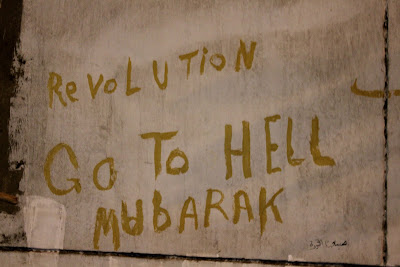 ReVOLUTiON
GO To HELL
MUBARAK